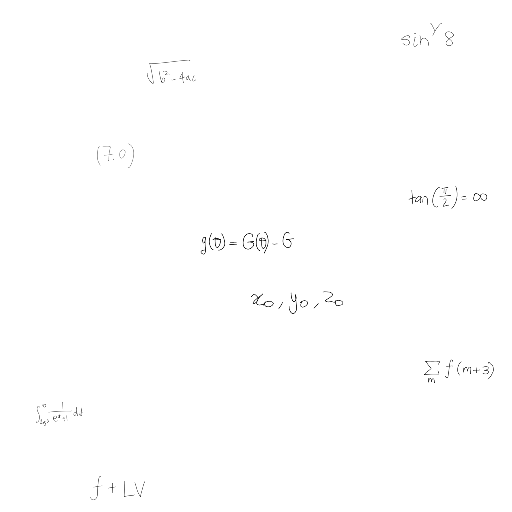 sin^Y 8
√(b² - 4ac)
(7.0)
tan(π/2) = ∞
g(t) = G(t) - G
x₀, y₀, z₀
∑ₘ f(m+3)
f + LV